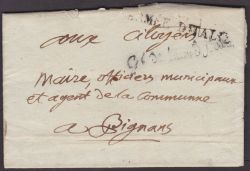 ARMÉE D'ITALIE
aux citoyens
Maire officiers municipaux
et agent de la Commune
a Bignans